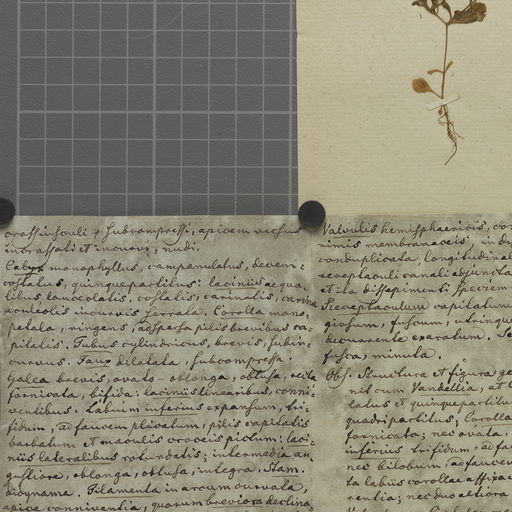 crassiusculi & subcompressi, apicem versus
incrassati et incurvi, nudi.
Calyx monophyllus, campanulatus, decem-
costatus, quinquepartitus: laciniis aequa-
libus lanceolatis, costatis, carinatis, carina
aculeolis incurvis serrata. Corolla mono-
petala, ringens, adspersa pilis brevibus ca-
pitatis. Tubus cylindricus, brevis, subin-
curvus. Faux dilatata, subcompressa.
Galea brevis, ovato-oblonga, obtusa, recta
fornicata, bifida: laciniis linearibus, conni-
ventibus. Labium inferius expansum, tri-
fidum, ad faucem plicatum, pilis capitatis
barbatum et maculis croceis pictum: laci-
niis lateralibus rotundatis; intermedia an-
gustiore, oblonga, obtusa, integra. Stam.
didynama. Filamenta in arcum curvata,
apice conniventia, quorum breviora declina-
Valvulis hemisphaericis, con
nimis membranaceis, in du
conduplicata, longitudinal
receptaculi canali adjuncta
et ita dissepimenti speciem
Receptaculum capitatum
giosum, fuscum, utrinque
decurrente exaratum. Se
fusca, minuta.
Obs. Structura et figura ge
nitorum Vandellia, at C
latus et quinquepartitu
quadripartitus; Corolla
fornicata; nec ovata.
inferius trifidum, ad fau
nec bilobum: ad faucem
ta labiis corollae affixa
rentia; nec duo altiora